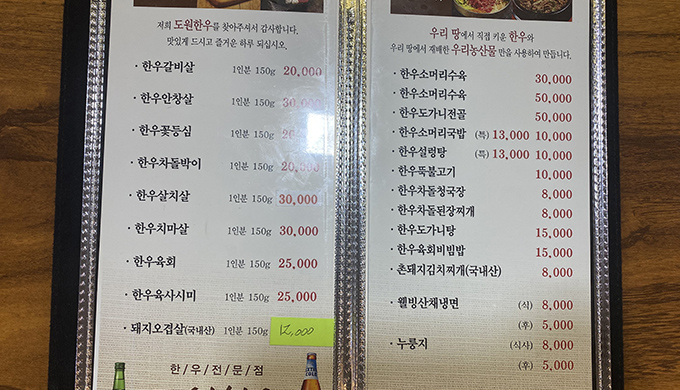 저희 도원한우를 찾아주셔서 감사합니다.
맛있게 드시고 즐거운 하루 되십시오.
· 한우갈비살 1인분 150g 20,000
· 한우안창살 1인분 150g 30,000
· 한우꽃등심 1인분 150g
· 한우차돌박이 1인분 150g 20,000
· 한우살치살 1인분 150g 30,000
· 한우치마살 1인분 150g 30,000
· 한우육회 1인분 150g 25,000
· 한우육사시미 1인분 150g 25,000
· 돼지오겹살(국내산) 1인분 150g 12,000
한/우/전/문/점
우리 땅에서 직접 키운 한우와
우리 땅에서 재배한 우리농산물 만을 사용하여 만듭니다.
· 한우소머리수육 30,000
· 한우소머리수육 50,000
· 한우도가니전골 50,000
· 한우소머리국밥 (특) 13,000 10,000
· 한우설렁탕 (특) 13,000 10,000
· 한우뚝불고기 10,000
· 한우차돌청국장 8,000
· 한우차돌된장찌개 8,000
· 한우도가니탕 15,000
· 한우육회비빔밥 15,000
· 촌돼지김치찌개(국내산) 8,000
· 웰빙산채냉면 (식) 8,000
(후) 5,000
· 누룽지 (식사) 8,000
(후) 5,000